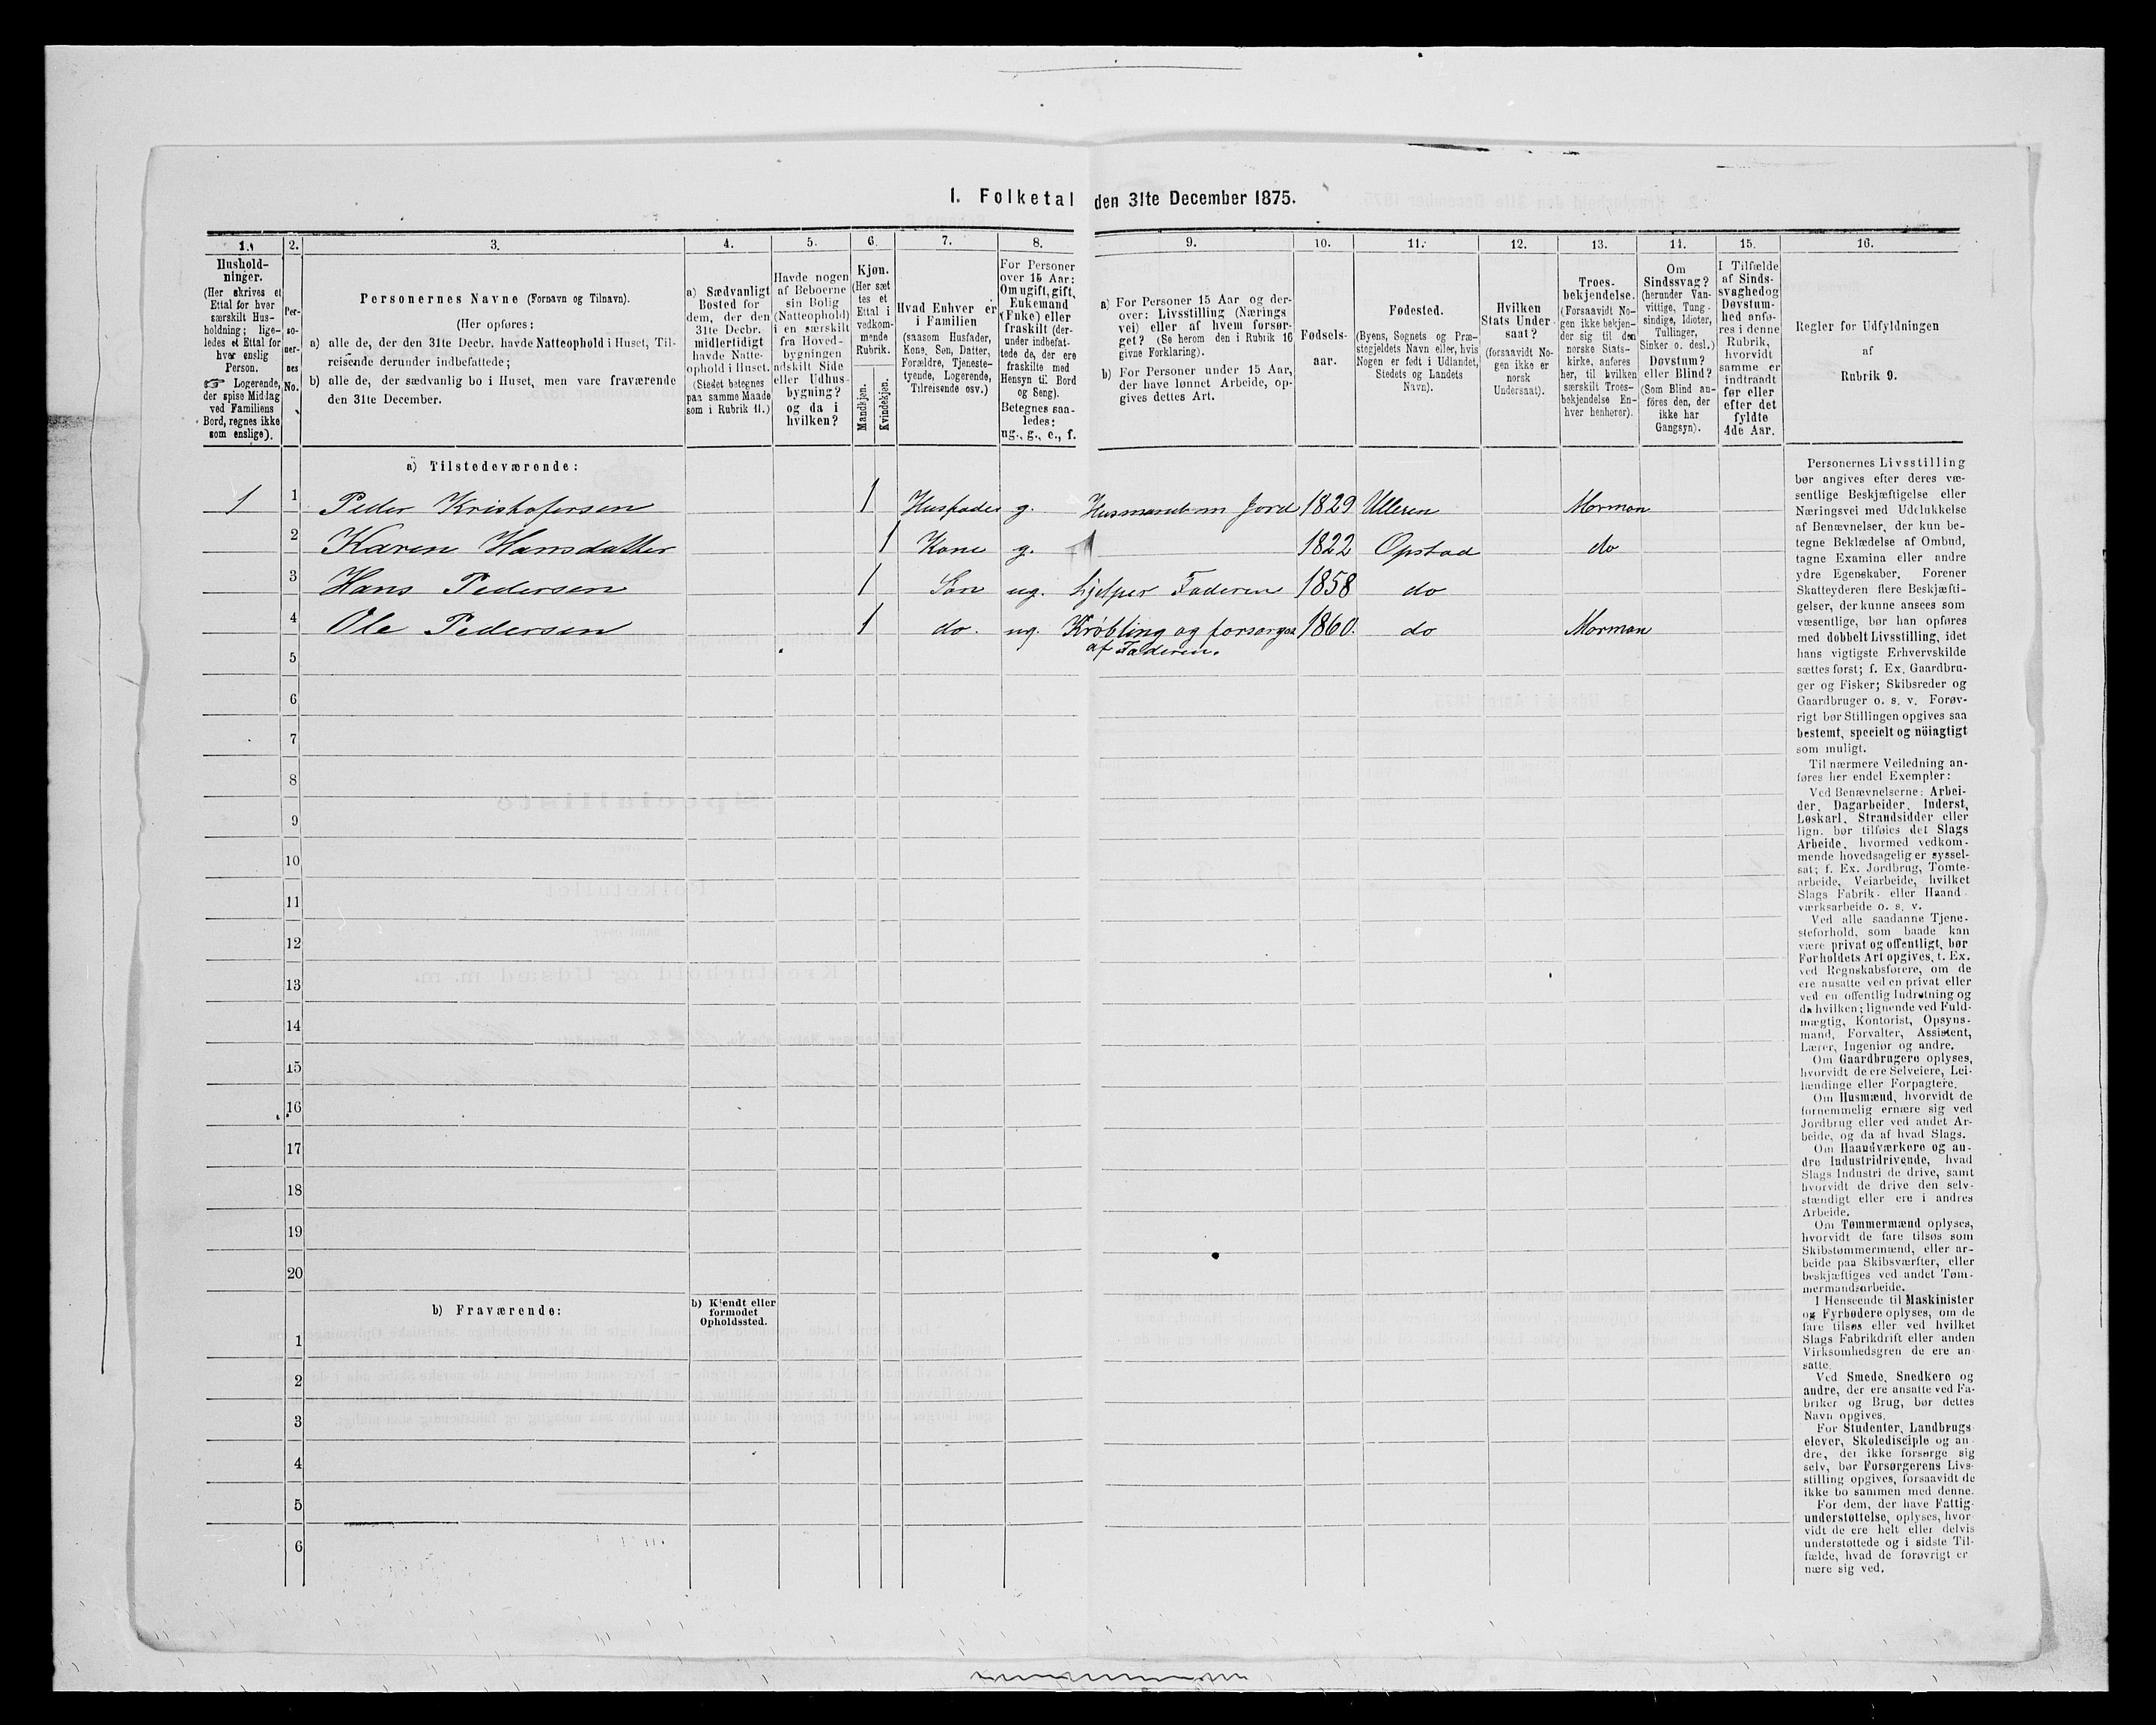 I. Folketal den 31te December 1875.
1. 2. 3. 4. 5. 6. 7. 8. 9. 10. 11. 12. 13. 14. 15. 16.
Hushold-
ninger.
(Her skrives et
Ettal for hver
særskilt Hus-
holdning; lige-
ledes et Ettal for
hver enslig
Person.
☞ Logerende,
der spise Middag
ved Familiens
Bord, regnes ikke
som enslige).
Per-
so-
ner-
nes
No.
Personernes Navne (Fornavn og Tilnavn).
(Her opføres:
a) alle de, der den 31te Decbr. havde Natteophold i Huset, Til-
reisende derunder indbefattede;
b) alle de, der sædvanlig bo i Huset, men vare fraværende
den 31te December.
a) Sædvanligt
Bosted for
dem, der den
31te Decbr.
midlertidigt
havde Natte-
ophold i Huset.
(Stedet betegnes
paa samme Maade
som i Rubrik 11.)
Havde nogen
af Beboerne
sin Bolig
(Natteophold)
i en særskilt
fra Hoved-
bygningen
adskilt Side
eller Udhus-
bygning?
og da i
hvilken?
Kjøn.
(Her sæt
tes et
Ettal i
vedkom-
mende
Rubrik.
Mandkjøn.
Kvindekjøn.
Hvad Enhver er
i Familien
(saasom Husfader,
Kone, Søn, Datter,
Forældre, Tjeneste-
tyende, Logerende,
Tilreisende osv.)
For Personer
over 15 Aar:
Om ugift, gift,
Enkemand
(Enke) eller
fraskilt (der-
under indbefat-
tede de, der ere
fraskilte med
Hensyn til Bord
og Seng).
Betegnes saa-
ledes:
ug., g., e., f.
a) For Personer 15 Aar og der-
over: Livsstilling (Nærings
vei) eller af hvem forsør-
get? (Se herom den i Rubrik 16
givne Forklaring).
b) For Personer under 15 Aar,
der have lønnet Arbeide, op-
gives dettes Art.
Fødsels-
aar.
Fødested.
(Byens, Sognets og Præ-
stegjeldets Navn eller, hvis
Nogen er født i Udlandet,
Stedets og Landets
Navn).
Hvilken
Stats Under-
saat?
(forsaavidt No-
gen ikke er
norsk
Undersaat).
Troes-
bekjendelse.
(Forsaavidt No-
gen ikke bekjen-
der sig til den
norske Stats-
kirke, anføres
her, til hvilken
særskilt Troes-
bekjendelse En-
hver henhører).
Om
Sindssvag?
(herunder Van-
vittige, Tung-
sindige, Idioter,
Tullinger,
Sinker o. desl.)
Døvstum?
eller Blind?
(Som Blind an-
føres den, der
ikke har
Gangsyn).
I Tilfælde
af Sinds-
svaghed og
Døvstum-
hed anfø-
res i denne
Rubrik,
hvorvidt
samme er
indtraadt
før eller
efter det
fyldte
4de Aar.
Regler for Udfyldningen
af
Rubrik 9.
a) Tilstedeværende:
1 1 Peder Kristofersen 1 Husfader g. Husmand m Jord 1829 Ulleren Mormon
2 Karen Hansdatter 1 Kone g. 1822 Opstad do
3 Hans Pedersen 1 Søn ug. hjelper Faderen 1858 do
4 Ole Pedersen 1 do. ug. Krøbling og forsørges 1860. do Mormon
af Faderen.
5
6
7
8
9
10
11
12
13
14
15
16
17
18
19
20
b) Fraværende:
b) Kjendt eller
formodet
Opholdssted.
1
2
3
4
5
6
Personernes Livsstilling
bør angives efter deres væ-
sentlige Beskjæftigelse eller
Næringsvei med Udelukkelse
af Benævnelser, der kun be-
tegne Beklædelse af Ombud,
tagne Examina eller andre
ydre Egenskaber. Forener
Skatteyderen flere Beskjæfti-
gelser, der kunne ansees som
væsentlige, bør han opføres
med dobbelt Livsstilling, idet
hans vigtigste Erhvervskilde
sættes først; f. Ex. Gaardbru-
ger og Fisker; Skibsreder og
Gaardbruger o. s. v. Forøv-
rigt bør Stillingen opgives saa
bestemt, specielt og nöiagtigt
som muligt.
Til nærmere Veiledning an-
føres her endel Exempler:
Ved Benævnelserne: Arbei-
der, Dagarbeider, Inderst,
Løskarl, Strandsidder eller
lign. bør tilføies det Slags
Arbeide, hvormed vedkom-
mende hovedsagelig er syssel-
sat; f. Ex. Jordbrug, Tomte-
arbeide, Veiarbeide, hvilket
Slags Fabrik- eller Haand-
værksarbeide o. s. v.
Ved alle saadanne Tjene-
steforhold, som baade kan
være privat og offentligt, bør
Forholdets Art opgives, t. Ex.
ved Regnskabsførere, om de
ere ansatte ved en privat eller
ved en offentlig Indretning og
da hvilken; lignende ved Fuld-
mægtig, Kontorist, Opsyns-
mand, Forvalter, Assistent,
Lærer, Ingeniør og andre.
Om Gaardbrugere oplyses,
hvorvidt de ere Selveiere, Lei-
lændinge eller Forpagtere.
Om Husmænd, hvorvidt de
fornemmelig ernære sig ved
Jordbrug eller ved andet Ar-
beide, og da af hvad Slags.
Om Haandværkere og an-
dre Industridrivende, hvad
Slags Industri de drive, samt
hvorvidt de drive den selv-
stændigt eller ere i andres
Arbeide.
Om Tømmermænd oplyses,
hvorvidt de fare tilsøs som
Skibstømmermænd, eller ar-
beide paa Skibsværfter, eller
beskjæftiges ved andet Tøm-
mermandsarbeide.
I Henseende til Maskinister
og Fyrbødere oplyses, om de
fare tilsøs eller ved hvilket
Slags Fabrikdrift eller anden
Virksomhedsgren de ere an-
satte.
Ved Smede, Snedkere og
andre, der ere ansatte ved Fa-
briker og Brug, bør dettes
Navn opgives.
For Studenter, Landbrugs-
elever, Skoledisciple og an-
dre, der ikke forsørge sig
selv, bør Forsørgerens Livs-
stilling opgives, forsaavidt de
ikke bo sammen med denne.
For dem, der have Fattig-
understøttelse, oplyses, hvor-
vidt de ere helt eller delvis
understøttede og i sidste Til-
fælde, hvad de forøvrigt er
nære sig ved.